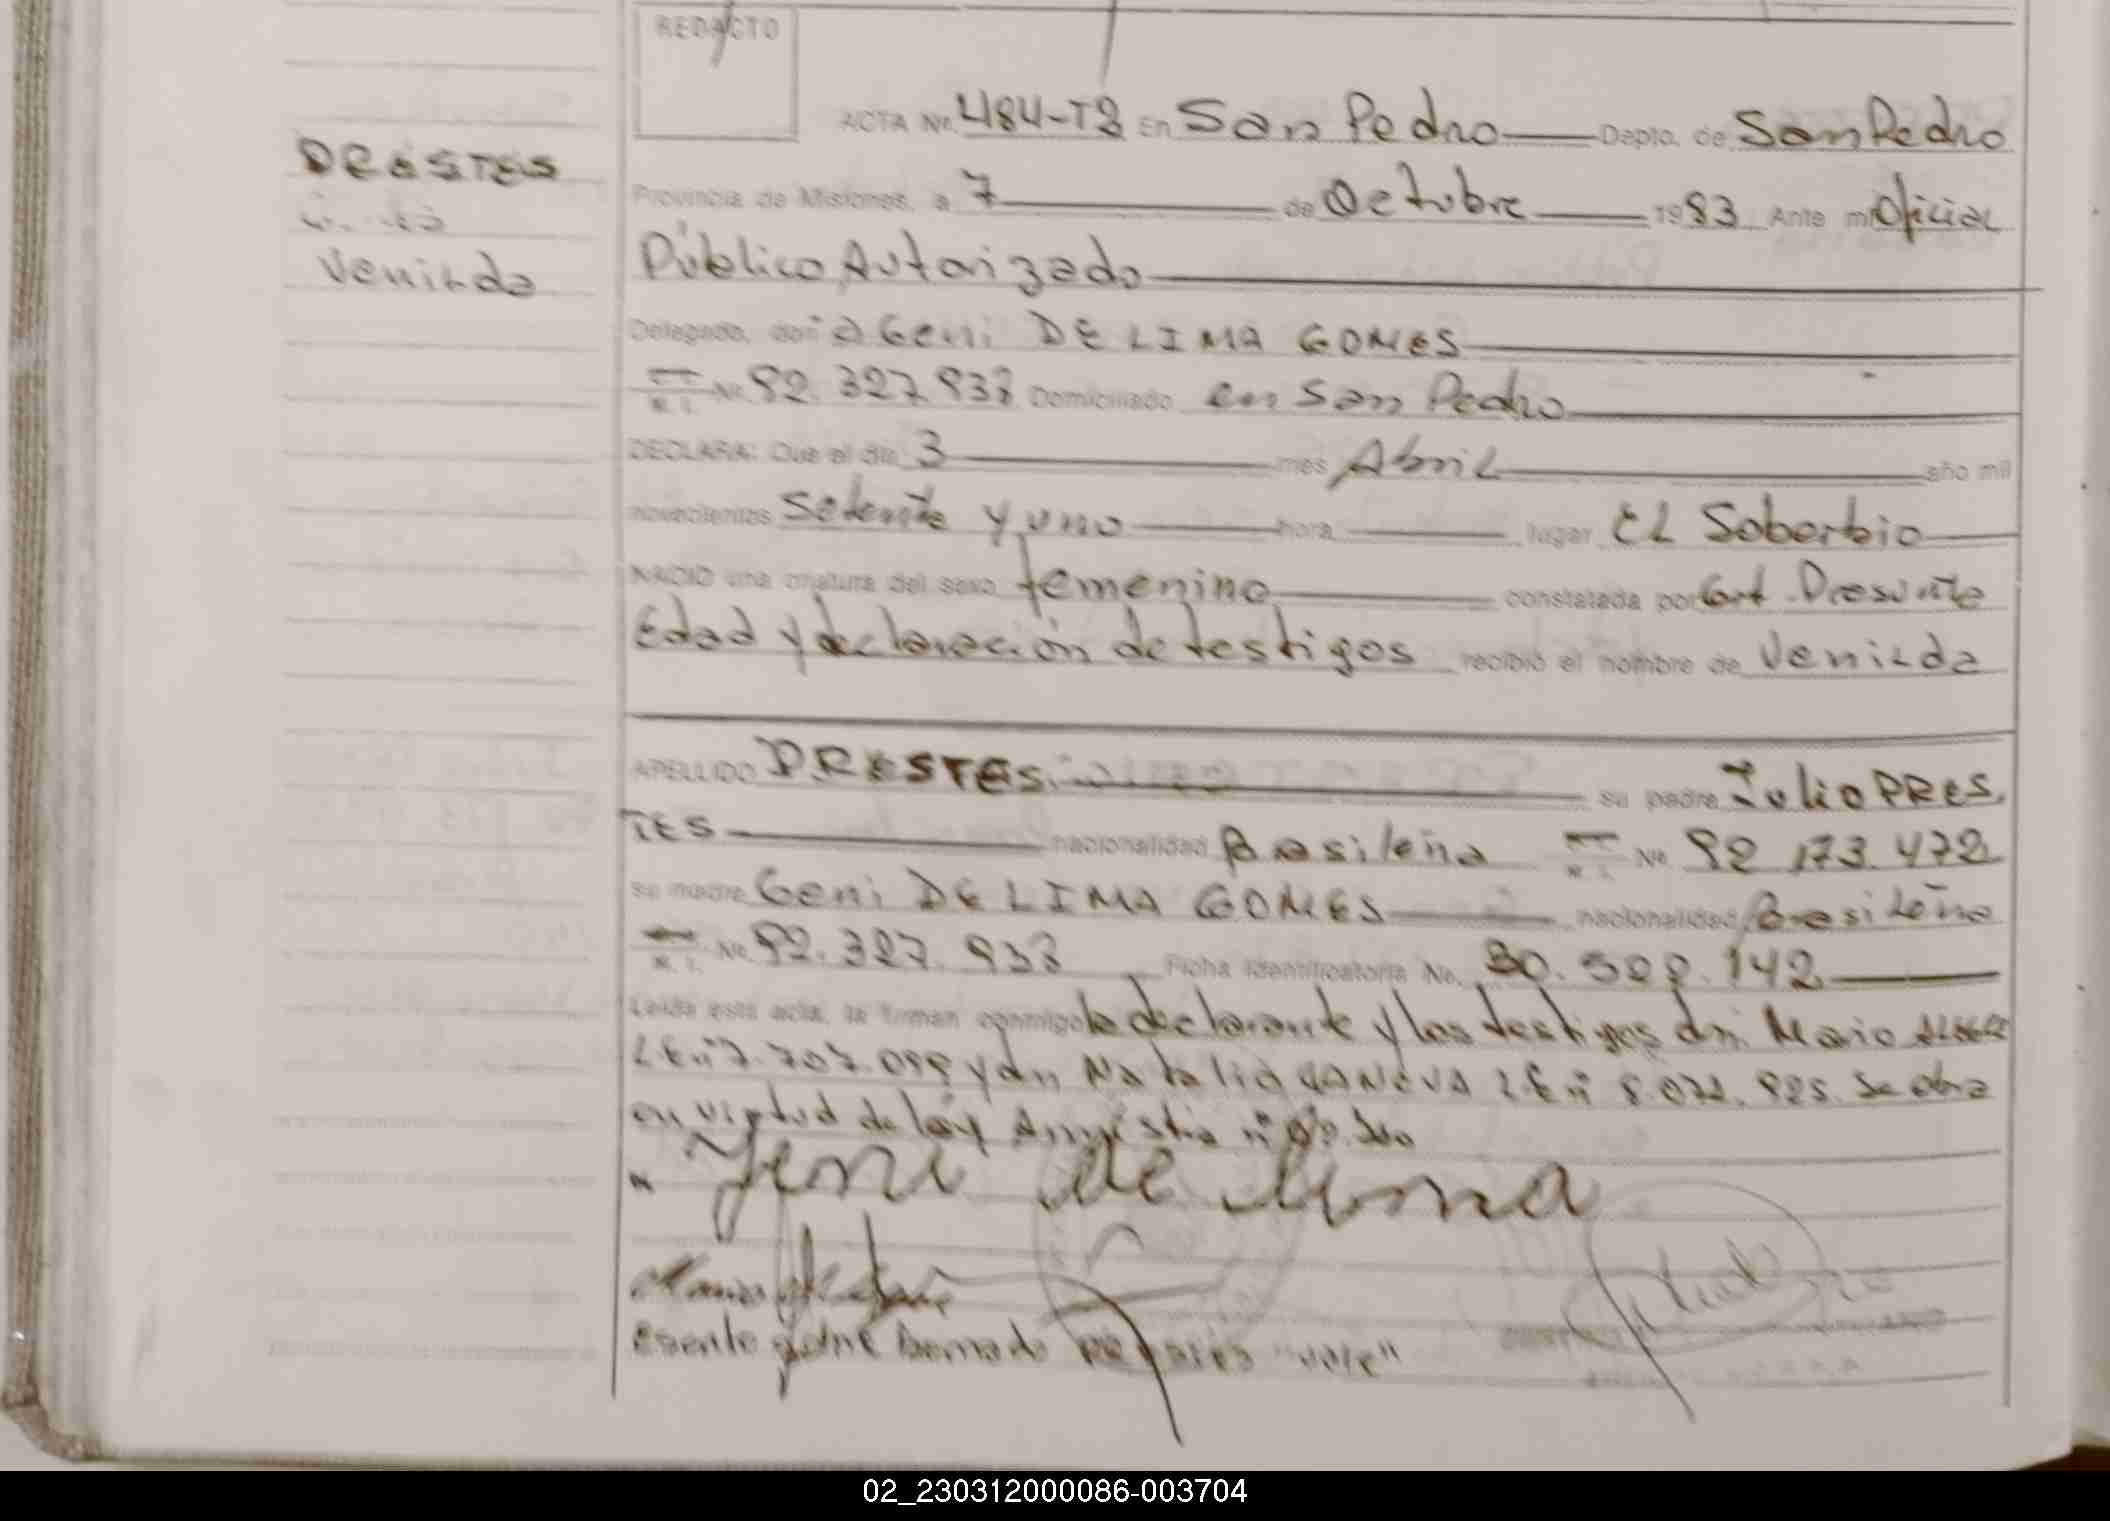 REDACTO
ACTA No. 484-T3 En San Pedro Depto. de San Pedro
PRESTES
Provincia de Misiones, a 7 de Octubre 1983 Ante mi Oficial
Venilda
Público Autorizado
Delegado, doña Geni DE LIMA GOMES
M. I. No. 92.327.938 Domiciliado en San Pedro
DECLARA: Que el día 3 mes Abril año mil
novecientos setenta y uno hora lugar El Soberbio
NACIO una criatura del sexo femenino constatada por Cert. Presunta
Edad y declaración de testigos recibió el nombre de Venilda
APELLIDO PRESTES su padre Julio PRES
TES nacionalidad Brasileña M. I. No. 92.173.472
su madre Geni DE LIMA GOMES nacionalidad Brasileña
M. I. No. 92.327.938 Ficha Identificatoria No. 30.508.142
Leída esta acta, la firman conmigo la declarante y los testigos dn. Mario
L.E.nº 7.707.099 y dn Natalio CANOVA L.E nº 8.071.925. Se obra
en virtud de ley Amnistia nº
Jeni de Lima
Mario
"vale"
02_230312000086-003704